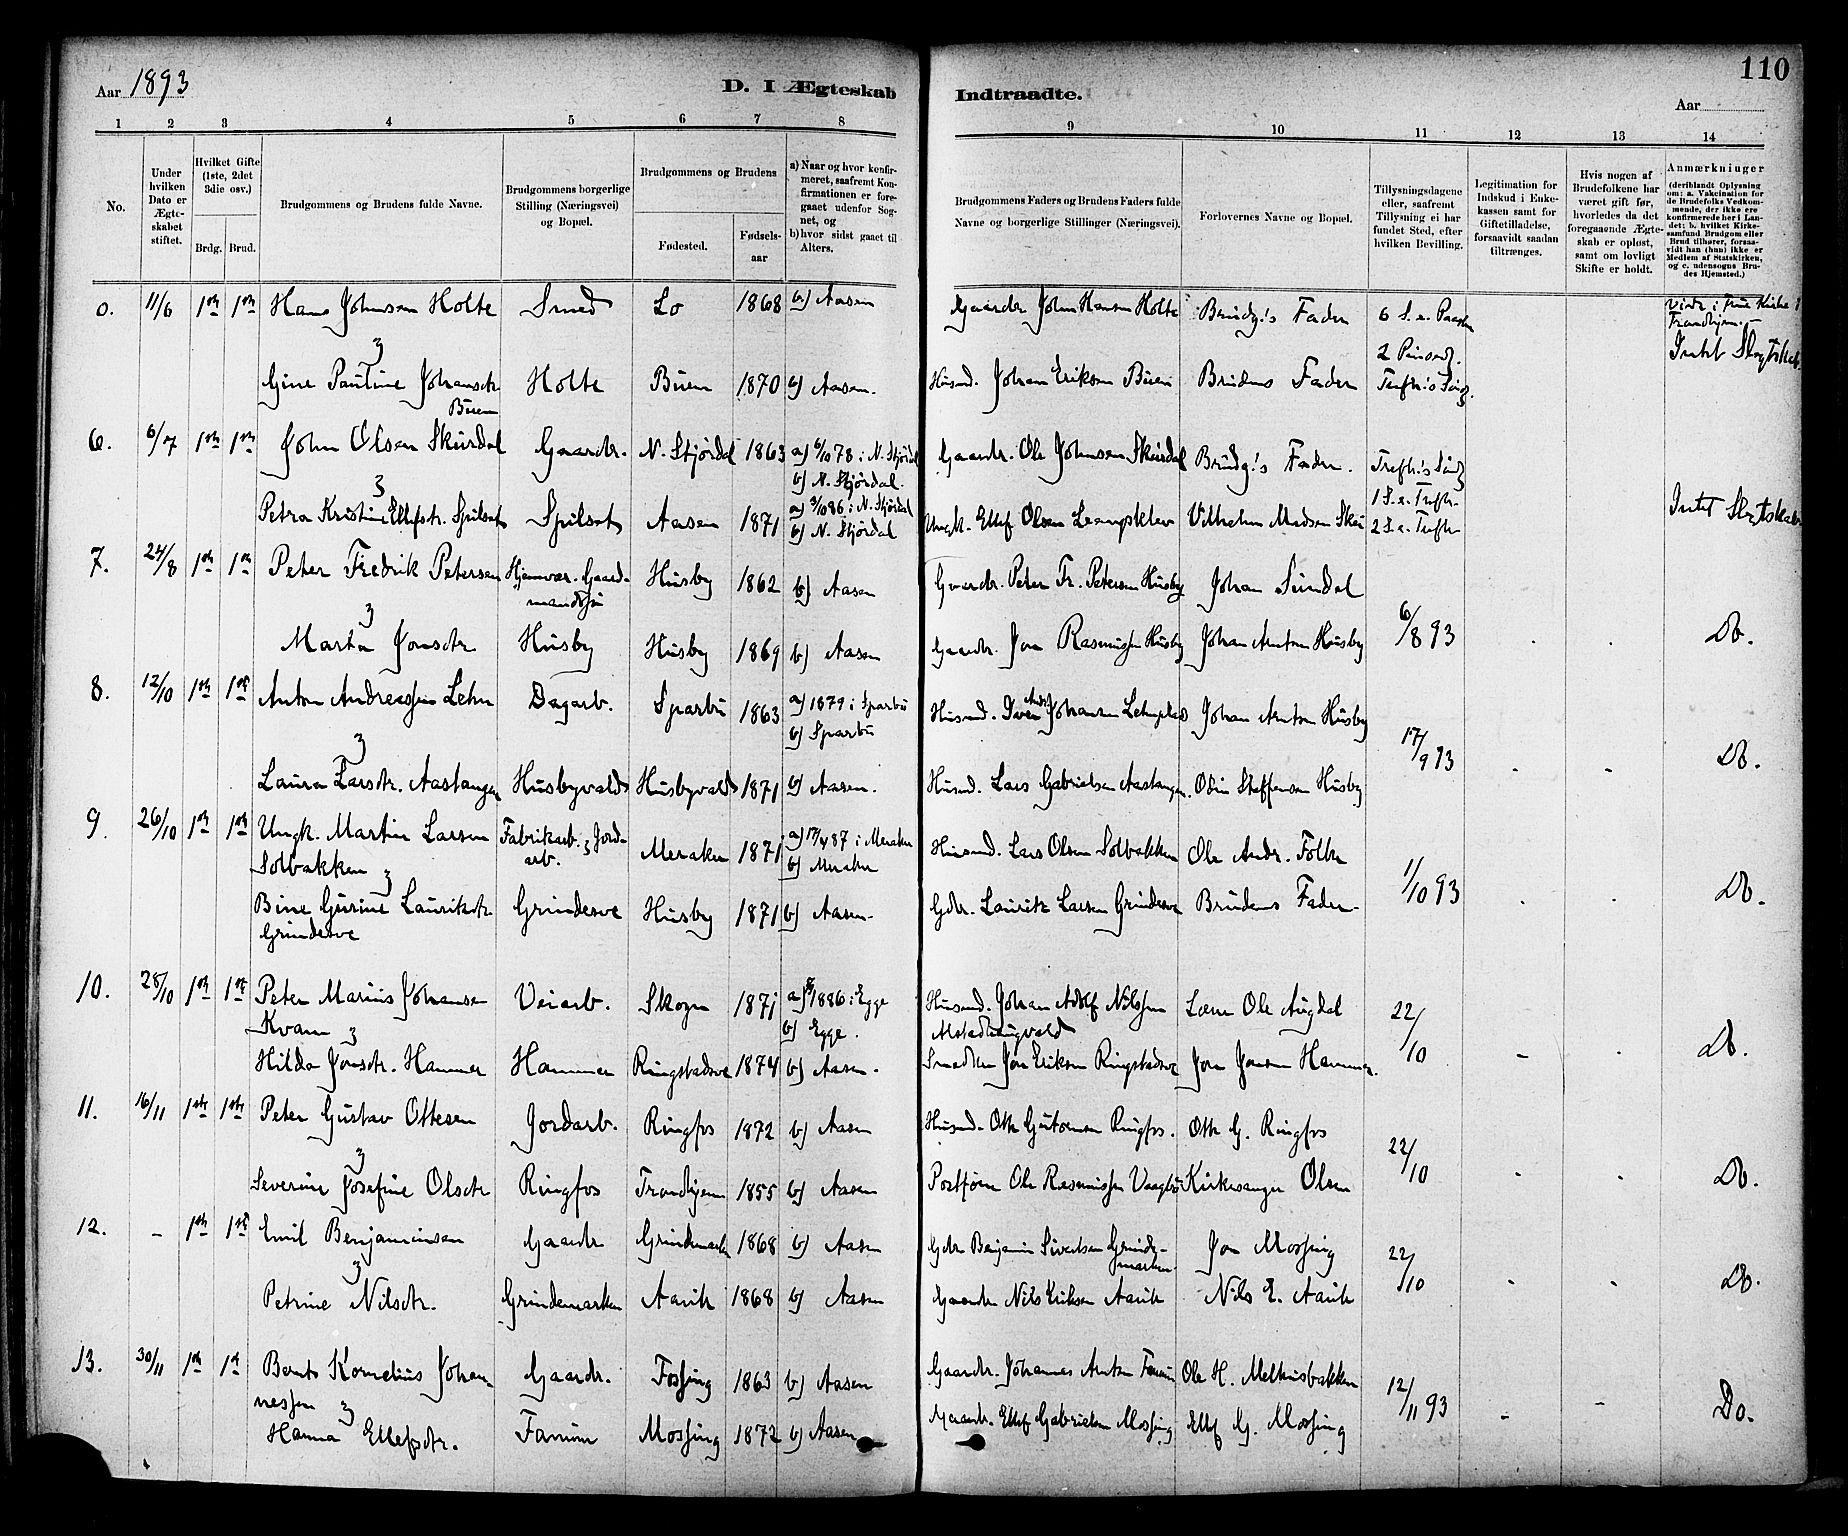 110
Aar 1893
D. I Ægteskab
Indtraadte.
Aar
1 2 3 4 5 6 7 8
9 10 11 12 13 14
No.
Under hvilken Dato er Ægteskabet stiftet.
Hvilket Gifte (1ste, 2det 3die osv.)
Brdg. Brud.
Brudgommens og Brudens fulde Navne.
Brudgommens borgerlige Stilling (Næringsvei) og Bopæl.
Brudgommens og Brudens
Fødested.
Fødselsaar
a) Naar og hvor konfirmeret, saafremt Konfirmationen er foregaaet udenfor Sognet, og
b) hvor sidst gaaet til Alters.
Brudgommens Faders og Brudens Faders fulde Navne og borgerlige Stillinger (Næringsvei).
Forlovernes Navne og Bopæl.
Tillysningsdagene eller, saafremt Tillysning ei har fundet Sted, efter hvilken Bevilling.
Legitimation for Indskud i Enkekassen samt for Giftetilladelse, forsaavidt saadan tiltrænges.
Hvis nogen af Brudefolkene har været gift før, hvorledes da det foregaaende Ægteskab er opløst, samt om lovligt Skifte er holdt.
Anmærkninger
(deriblandt Oplysning om: a. Vakcination for de Brudefolks Vedkommende, der ikke ere konfirmerede her i Landet: b. hvilket Kirkesamfund Brudgom eller Brud tilhører, forsaavidt han (hun) ikke er Medlem af Statskirken, og c. udensogns Brudes Hjemsted.)
0. 11/6 1ste 1ste Hans Johnsen Holte Smed Lo 1868 b) Aasen Gaardr John Hansen Holte Brudg.'s Fader 6 S. e. Paaske
2 Pinsed.
& Gine Pauline Johansdtr Buen Holte Buen 1870 b) Aasen. Husmd. Johan Eriksen Buen Brudens Fader Trefh.'s Søndg. Intet Slegtskab
6. 6/7 1ste 1ste John Olsen Skurdal Gaardr. N. Stjørdal 1863 a) 6/10 78 i N. Stjørdal b) N. Stjørdal. Gaardr. Ole Johnsen Skurdal Brudg.'s Fader. Trefh.'s Sønd
& Petra Kristine Ellefsdtr. Spilset Spilset Aasen 1871 a) 3/10 86 i N. Stjørdal b) N. Stjørdal Ungk. Ellef Olsen Vilhelm Madsen 1 S. e. Trefh. 2 S. e. Trefh. Intet Slegtskab
7. 24/8 1ste 1ste Peter Fredrik Petersen Hjemvær. Gaardmandssøn Husby 1862 b) Aasen Gaardr. Peter Fr. Petersen Husby Johan Sundal
& Marta Jonsdtr Husby Husby 1869 b) Aasen Gaardr. Jon Rasmussen Husby Johan Anton Husby 6/8 93 Do.
8. 12/10 1ste 1ste Anton Andreassen Lehn Dagarb. Sparbu 1863 a) 1879 i Sparbu b) Sparbu Husmd. Andr. Johansen Johan Anton Husby
& Laura Larsdtr. Aastangen Husbyvald Husbyvald 1871 b) Aasen. Husmd. Lars Gabrielsen Aastangen. Odin Steffensen Husby 17/9 93 Do.
9. 26/10 1ste 1ste Ungk. Martin Larsen Solbakken Fabrikarb. & Jordarb. Meraker 1871 a) 17/4 87 i Meraker b) Meraker Husmd. Lars Olsen Solbakken Ole Andr. Folbe
& Bine Gurine Lauritsdtr Grindesve Grindesve Husby 1871 b) Aasen. Gdr. Laurits Larsen Grindesve Brudens Fader. 1/10 93 Do.
10. 28/10 1ste 1ste Peter Marius Johansen Kvam Veiarb. Skogn 1871 a) 1886 i Egge b) Egge. Husmd. Johan Adolf Nilssen Alstadhaugvald Lærer Ole Augdal
& Hilda Jonsdtr. Hammer Hammer Ringstadsve 1874 b) Aasen. Smed Jon Eriksen Ringstadsve Jon Jonsen Hammer. 22/10 Do.
11. 16/11 1ste 1ste Peter Gustav Ottesen Jordarb. Ringfos 1872 b) Aasen Husmd. Otte Guttormsen Ringfos. Otte G. Ringfos
& Severine Josefine Olsdtr Ringfos Trondhjem 1855 b) Aasen Postfører Ole Rasmussen Kirkesanger Olsen 22/10 Do.
12. - 1ste 1ste Emil Benjaminsen Gaardr Grindemarken 1868 b) Aasen Gdr Benjamin Sivertsen Grindemarken Jon Mossing
& Petrine Nilsdtr. Grindemarken Aavik 1868 b) Aasen Gaardr Nils Eriksen Aavik Nils E. Aavik 22/10 Do.
13. 30/11 1ste 1ste Bernts Kornelius Johannessen Gaardr. Fossing 1863 b) Aasen Gaardr. Johannes Anton Fanium Ole H. Melhusbakken
& Hanna Ellefsdtr. Fanium Mossing 1872 b) Aasen Gaardr. Ellef Gabrielsen Mossing Ellef G. Mossing 12/11 93 Do.